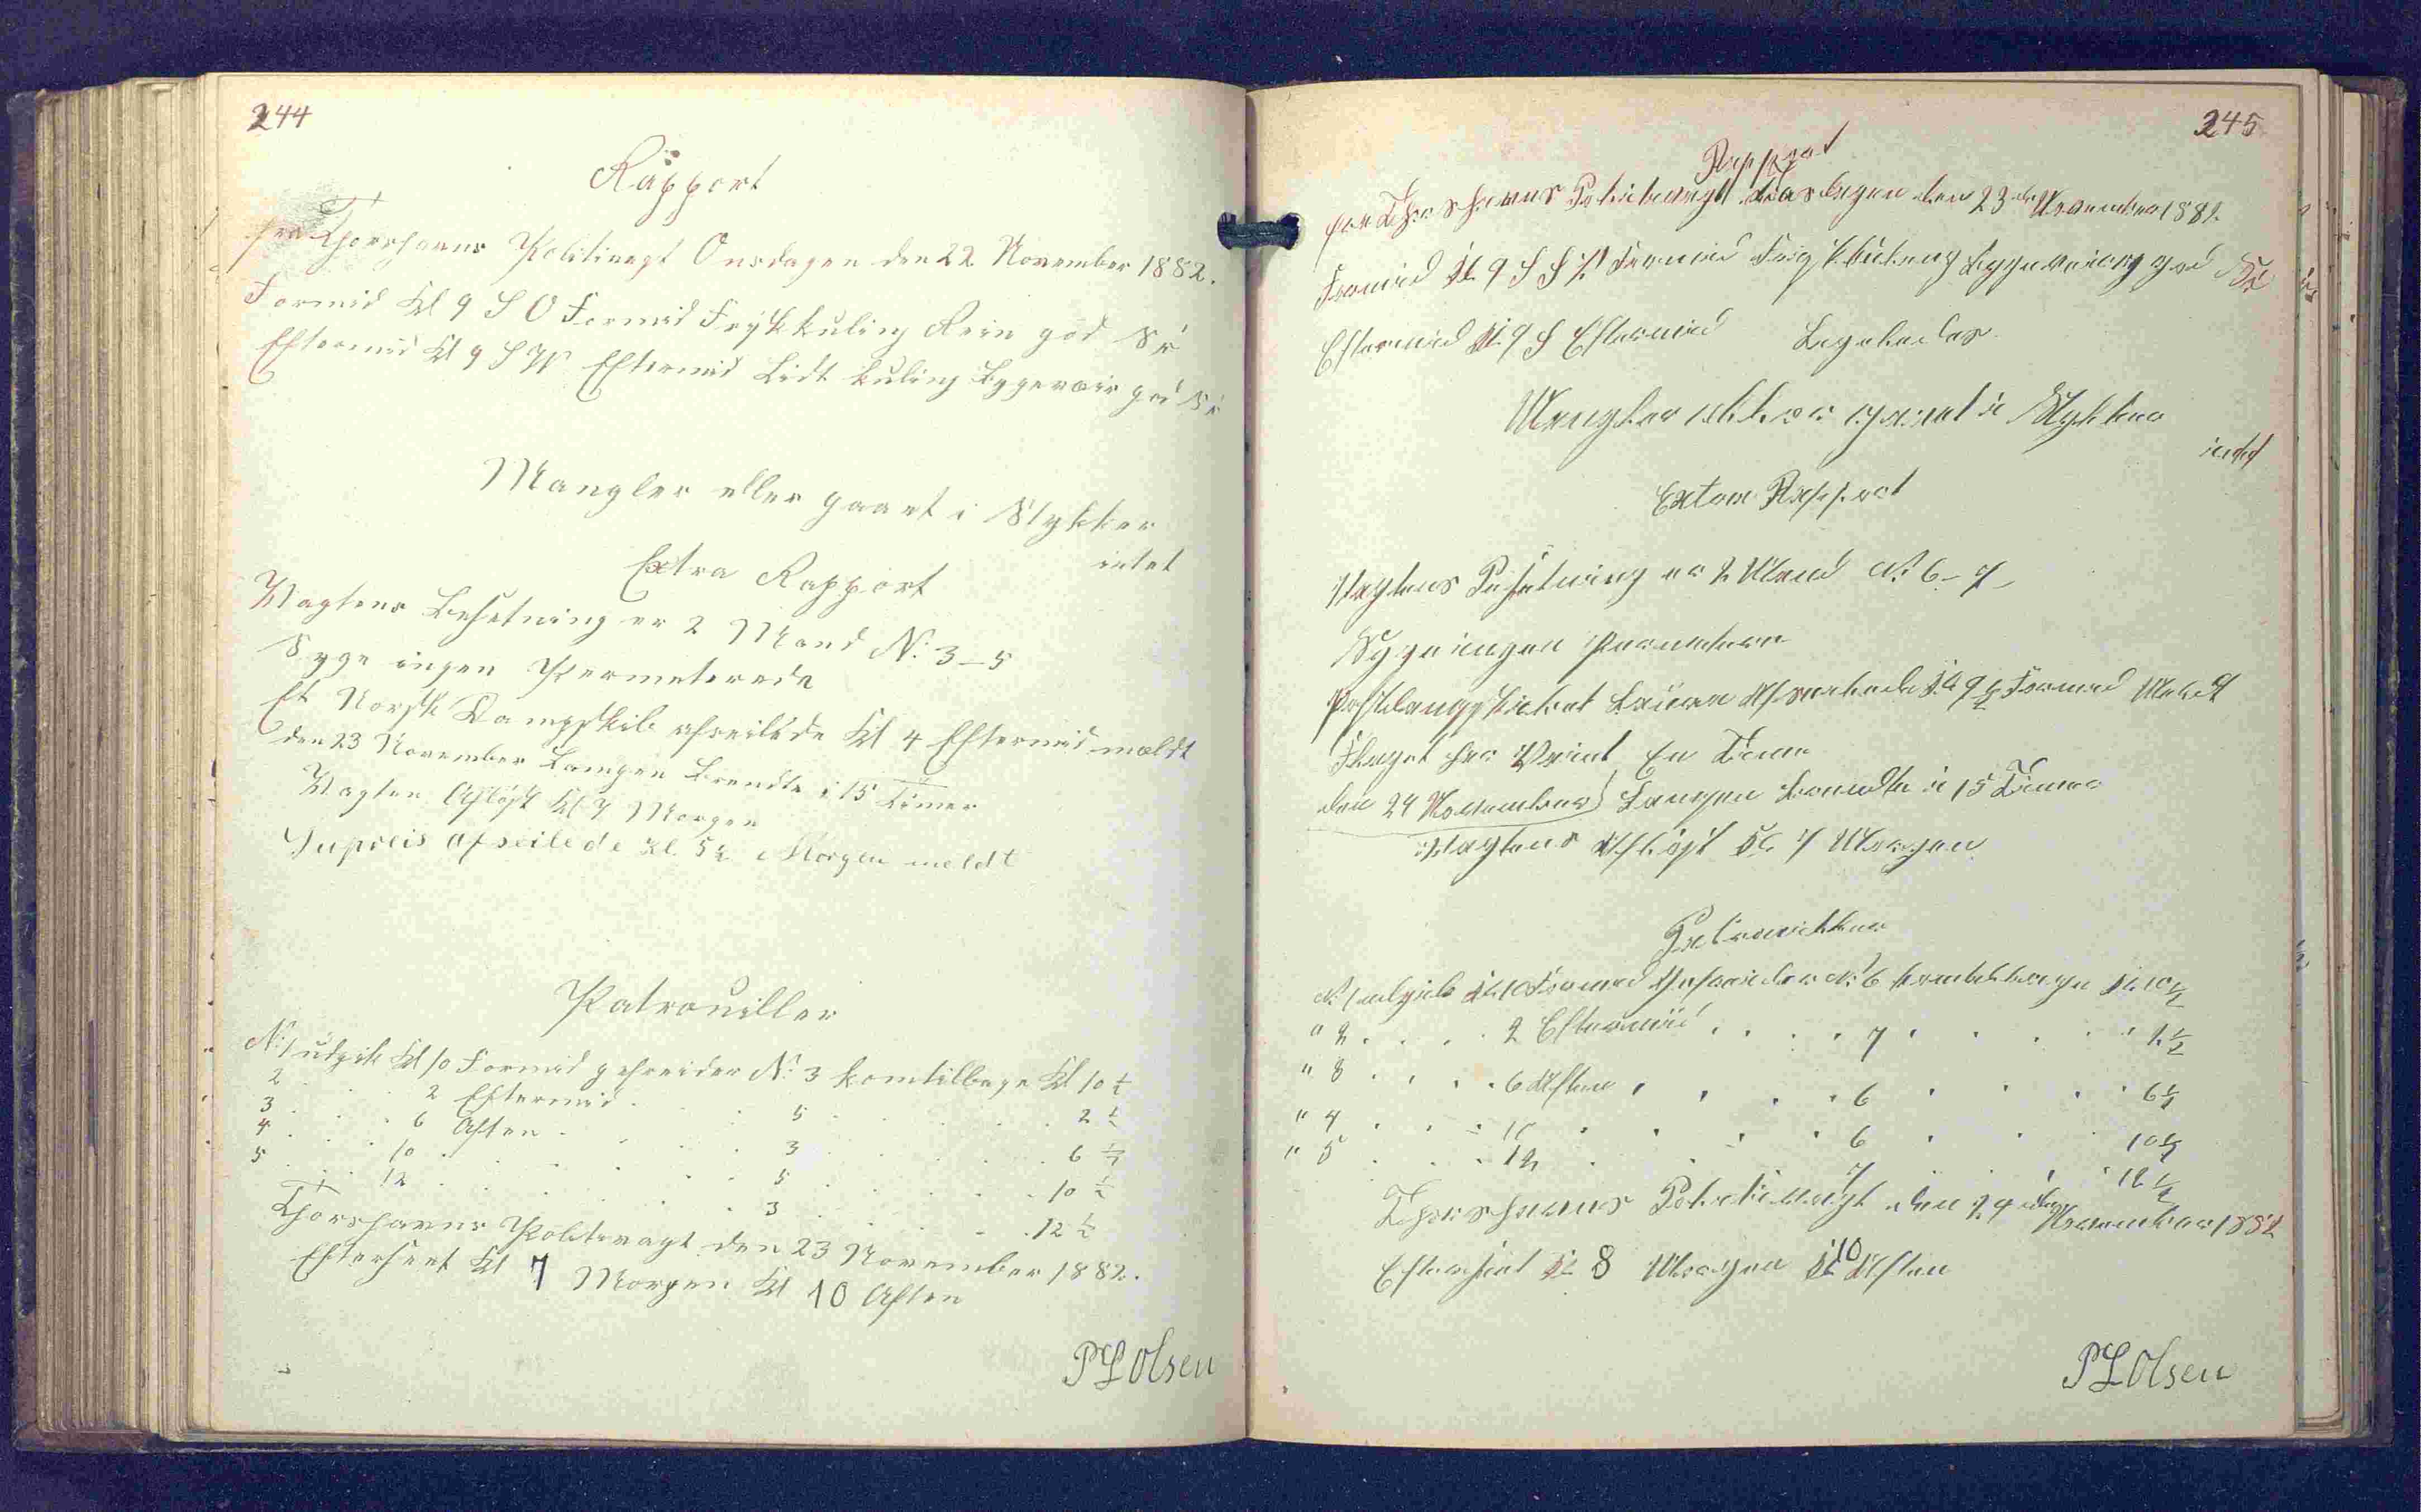 244
Rapport
fra Thorshavns Politivagt Onsdagen den 22 November 1882.
Formid Kl 9 S O Formid Friskkuling Rein god Sr
Eftermid Kl 9 S W Eftermid Lidt kuling Bygevair god Sr
Mangler eller gaaet i Stykker
intet
Extra Rapport
Vagtens Besetning er 2 Mand N: 3–5
Syge ingen Permeterede
Et Norsk Dampskib afseilede Kl 4 Eftermid meldt
den 23 November Lampen Brendte i 15 Timer
Vagten Afløst Kl 7 Morgen
afseilede Kl. 5½ Morgen meldt
Patrouiller
N: 1 udgik Kl 10 Formid gefreider N: 3 kom tilbage Kl 10 ½
2 . . . 2 Eftermid . . . 5 . . . 2 ½
3 . . . 6 Aften . . . 3 . . . 6 ½
4 . . . 10 . . . 5 . . . 10 ½
5 . . . 12 . . . 3 . . . 12 ½
Thorshavns Politivagt den 23 November 1882.
Efterseet Kl 7 Morgen Kl 10 Aften
P L Olsen
245
Rapport
fra Thorshavns Politivagt Torsdagen den 23 de November 1882
Formid Kl. 9 S S W Formid Friskkuling Bygevair god Sr
Eftermid Kl. 9 S Eftermid Ligeledes
Mangler eller gaaet i Stykker
intet
Extra Rapport
Vagtens Besetning er 2 Mand N: 6–7
Syge ingen Permeterede
Postdampskibet Laura Afseilede Kl 9½ Formid Meldt
Flaget har Vaiet En Time
den 24 November Lampen brendte i 15 Timer
Vagtens Afløst Kl. 7 Morgen
Patrouiller
N: 1 udgik Kl. 10 Formid Gefreider N: 6 kom tilbage Kl. 10½
" 2 . . . 2 Eftermid . . . 7 . . . 2½
" 3 . . . 6 Aften . . . 6 . . . 6½
" 4 . . . 10 . . . 6 . . . 10½
" 5 . . . 12 . . . 7 . . . 12½
Thorshavns Politivagt den 24 de November 1882
Efterseet Kl. 8 Morgen Kl 10 Aften
P L Olsen